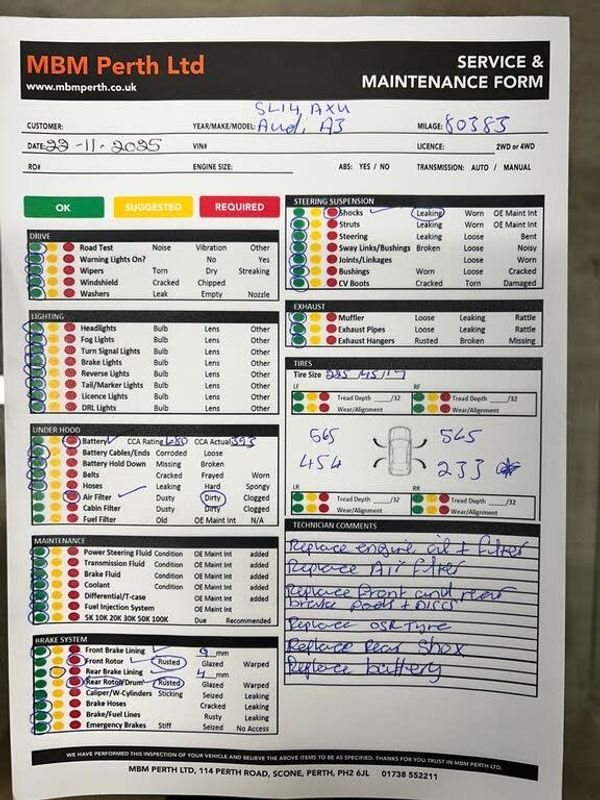 MBM Perth Ltd
www.mbmperth.co.uk
SERVICE &
MAINTENANCE FORM
SL14 AXU
CUSTOMER: YEAR/MAKE/MODEL: Audi A3 MILEAGE: 80383
DATE: 22-11-2025 VIN# LICENCE: 2WD or 4WD
RO# ENGINE SIZE: ABS: YES / NO TRANSMISSION: AUTO / MANUAL
OK SUGGESTED REQUIRED
DRIVE
Road Test Noise Vibration Other
Warning Lights On? No Yes
Wipers Torn Dry Streaking
Windshield Cracked Chipped
Washers Leak Empty Nozzle
LIGHTING
Headlights Bulb Lens Other
Fog Lights Bulb Lens Other
Turn Signal Lights Bulb Lens Other
Brake Lights Bulb Lens Other
Reverse Lights Bulb Lens Other
Tail/Marker Lights Bulb Lens Other
Licence Lights Bulb Lens Other
DRL Lights Bulb Lens Other
UNDER HOOD
Battery CCA Rating 680 CCA Actual 393
Battery Cables/Ends Corroded Loose
Battery Hold Down Missing Broken
Belts Cracked Frayed Worn
Hoses Leaking Hard Spongy
Air Filter Dusty Dirty Clogged
Cabin Filter Dusty Dirty Clogged
Fuel Filter Old OE Maint Int N/A
MAINTENANCE
Power Steering Fluid Condition OE Maint Int added
Transmission Fluid Condition OE Maint Int added
Brake Fluid Condition OE Maint Int added
Coolant Condition OE Maint Int added
Differential/T-case OE Maint Int added
Fuel Injection System OE Maint Int added
5K 10K 20K 30K 50K 100K Due Recommended
BRAKE SYSTEM
Front Brake Lining 9 mm
Front Rotor Rusted Glazed Warped
Rear Brake Lining 4 mm
Rear Rotor/Drum Rusted Glazed Warped
Caliper/W-Cylinders Sticking Seized Leaking
Brake Hoses Cracked Leaking
Brake/Fuel Lines Rusty Leaking
Emergency Brakes Stiff Seized No Access
STEERING SUSPENSION
Shocks Leaking Worn OE Maint Int
Struts Leaking Worn OE Maint Int
Steering Leaking Loose Bent
Sway Links/Bushings Broken Loose Noisy
Joints/Linkages Loose Worn
Bushings Worn Loose Cracked
CV Boots Cracked Torn Damaged
EXHAUST
Muffler Loose Leaking Rattle
Exhaust Pipes Loose Leaking Rattle
Exhaust Hangers Rusted Broken Missing
TIRES
Tire Size 225/45/17
LF RF
Tread Depth ____/32 Tread Depth ____/32
Wear/Alignment Wear/Alignment
565 565
454 233
LR RR
Tread Depth ____/32 Tread Depth ____/32
Wear/Alignment Wear/Alignment
TECHNICIAN COMMENTS
Replace engine oil + filter
Replace Air filter
Replace front and rear
brake pads + Discs
Replace OSR Tyre
Replace Rear Shox
Replace battery
WE HAVE PERFORMED THIS INSPECTION OF YOUR VEHICLE AND BELIEVE THE ABOVE ITEMS TO BE AS SPECIFIED. THANKS FOR YOU TRUST IN MBM PERTH.
MBM PERTH LTD, 114 PERTH ROAD, SCONE, PERTH, PH2 6JL 01738 552211